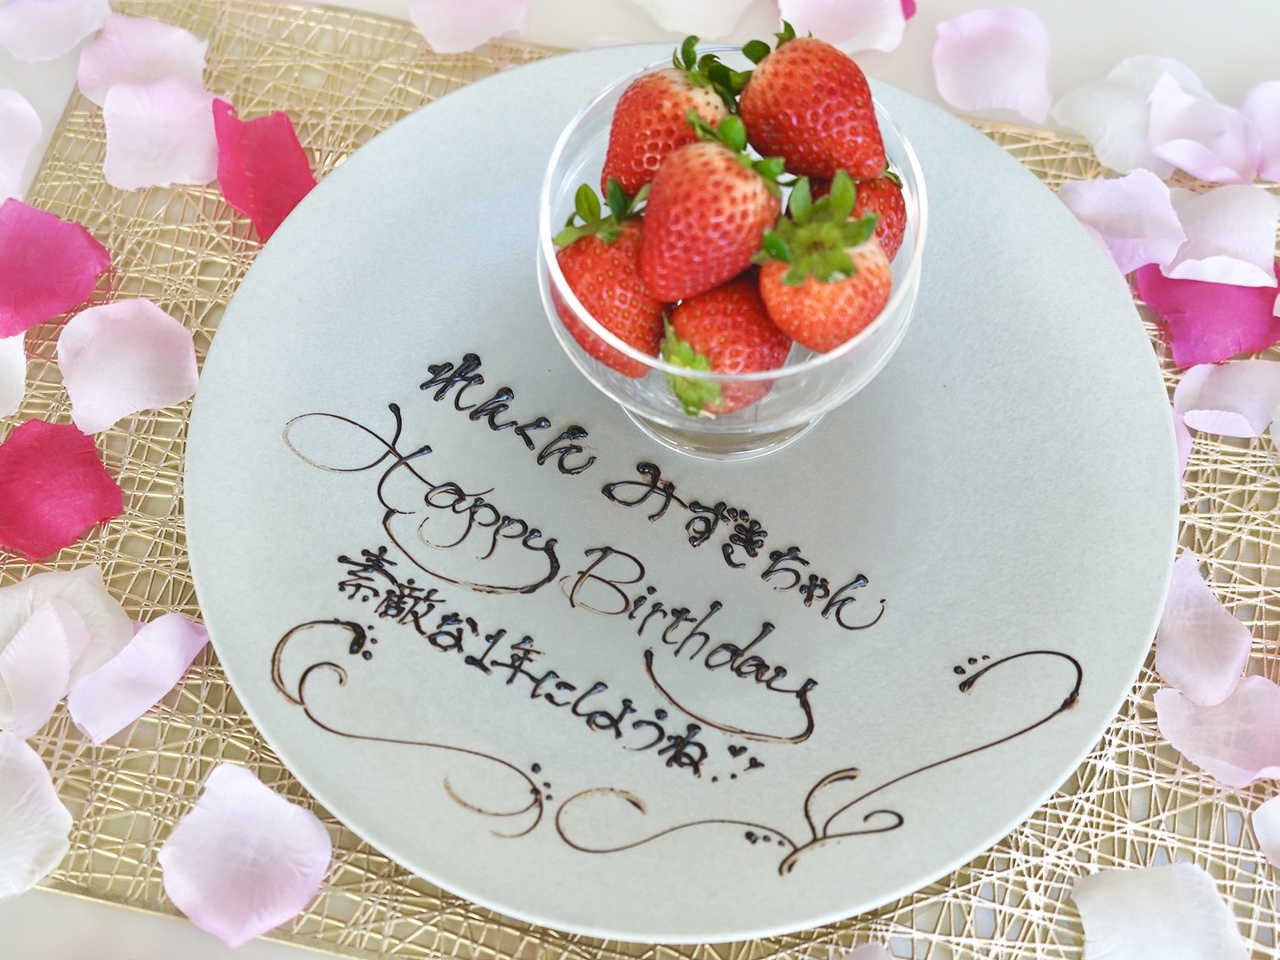 れんくん みずきちゃん
Happy Birthday
素敵な1年にしようね